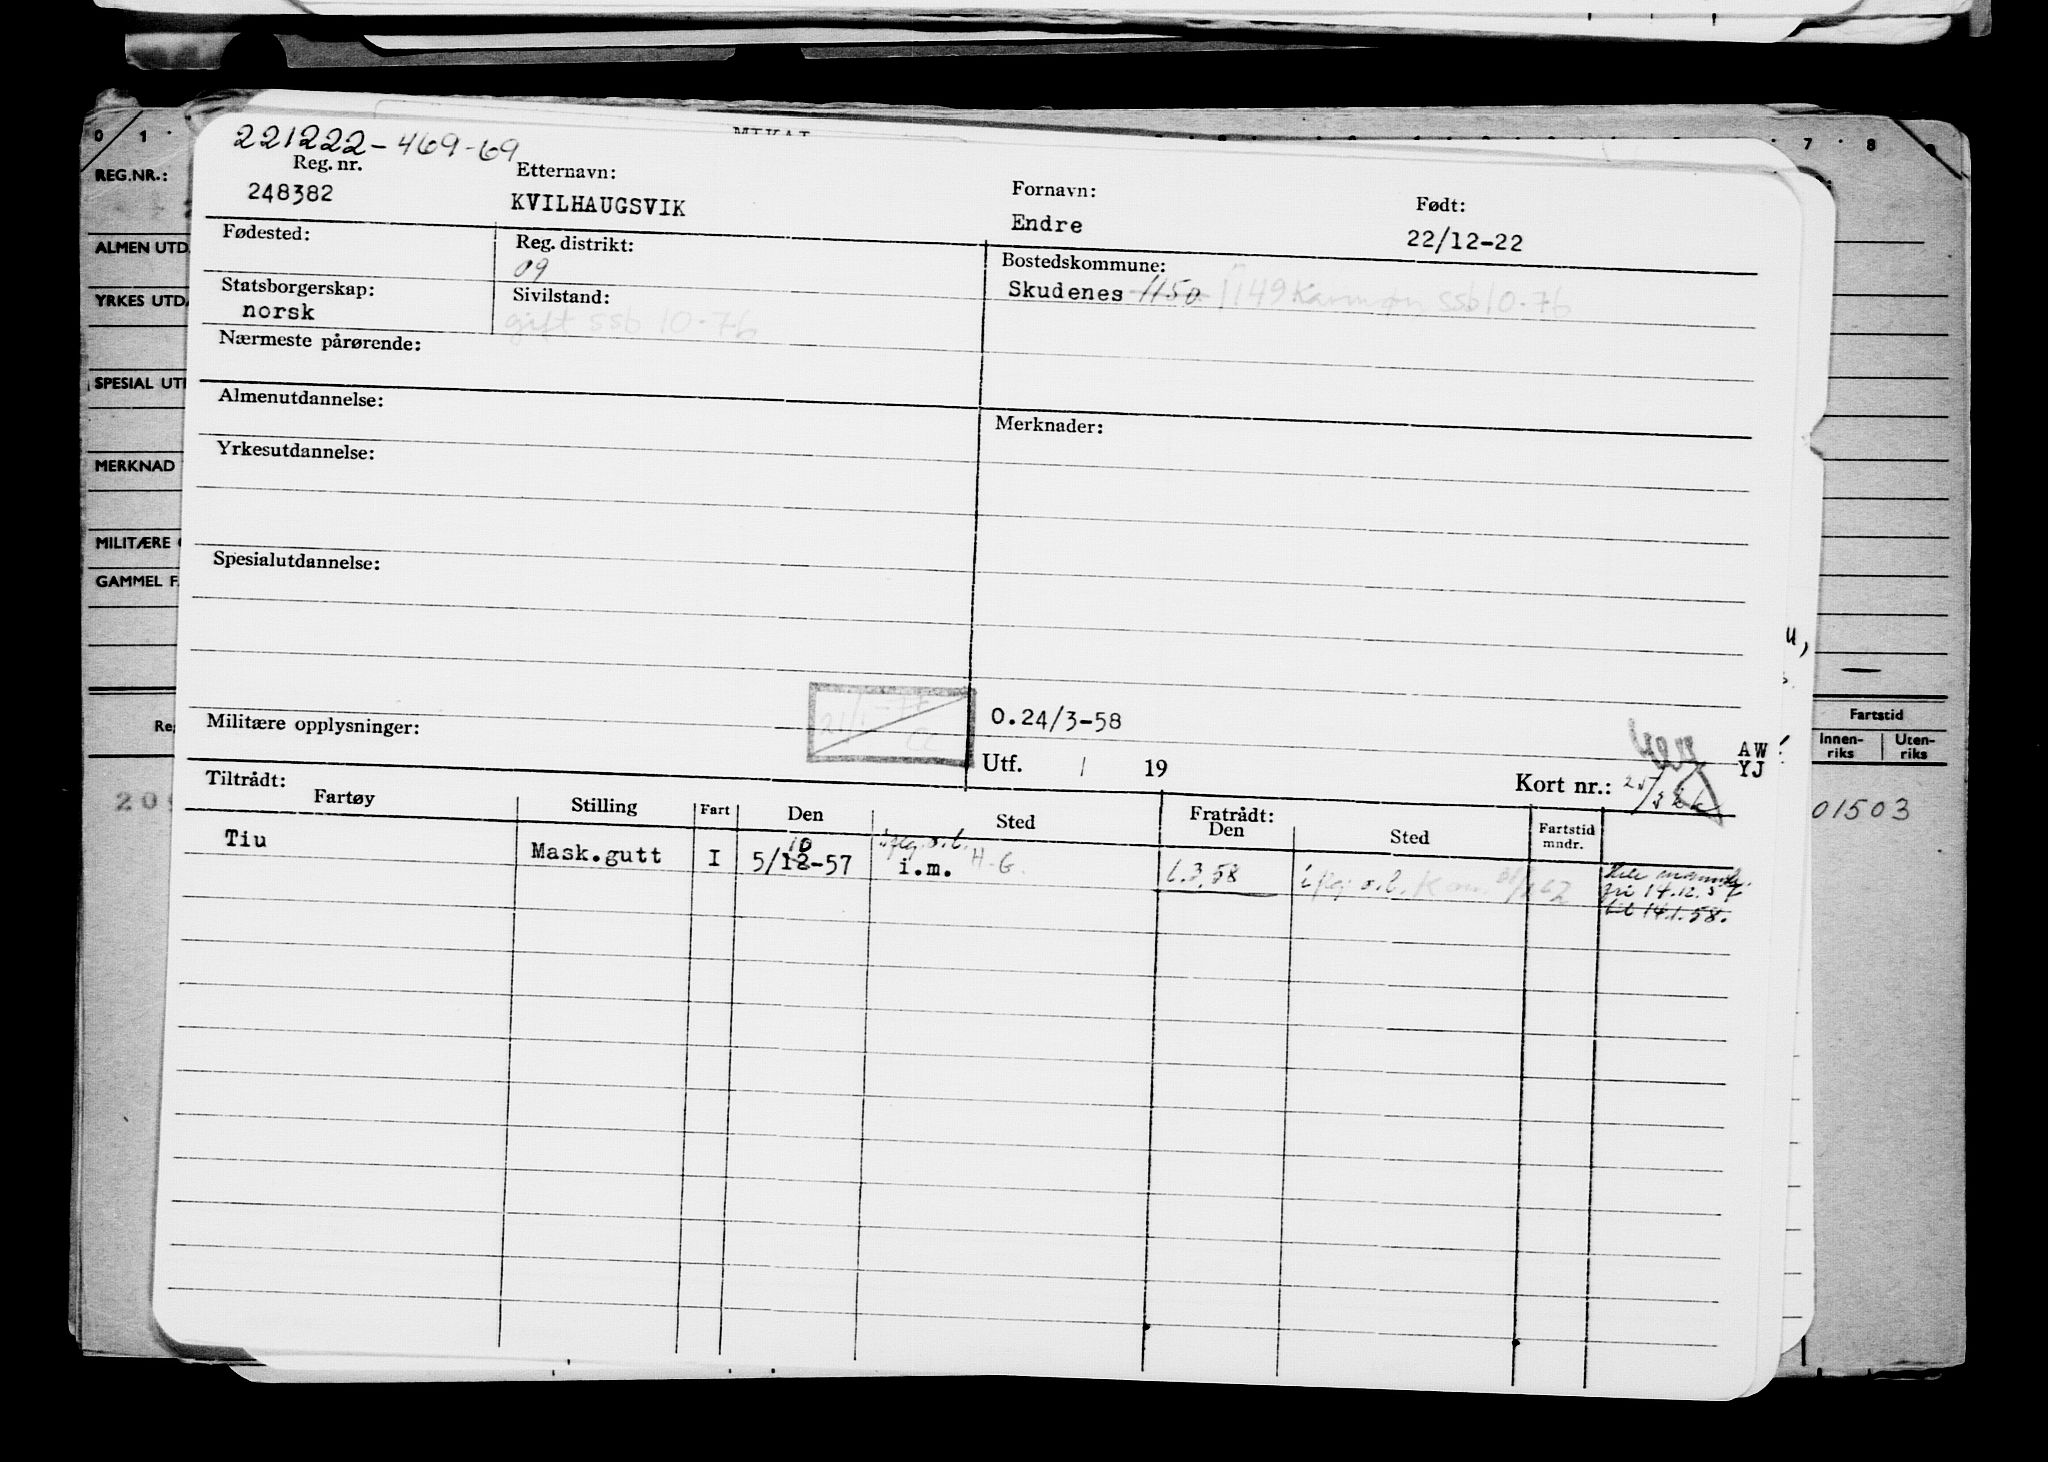 0 1 7 8
REG.NR.:
ALMEN UTD
YRKES UTD
SPESIAL UT
MERKNAD
MILITÆRE
GAMMEL F
221222-469-69
Reg. nr. Etternavn: Fornavn: Født:
248382 KVILHAUGSVIK Endre 22/12-22
Fødested: Reg. distrikt: Bostedskommune:
09 Skudenes 1150 1149 Karmøy ssb 10-76
Statsborgerskap: Sivilstand:
norsk gift ssb 10-76
Nærmeste pårørende:
Almenutdannelse: Merknader:
Yrkesutdannelse:
Spesialutdannelse:
Militære opplysninger: O.24/3-58
Utf. / 19 Kort nr.:
AW
YJ
Fartstid
Innen-riks Uten-riks
01503
Tiltrådt: Fratrådt:
Fartøy Stilling Fart Den Sted Den Sted Fartstid mndr.
10
Tiu Mask.gutt I 5/12-57 i.m. H-G. 1.3.58
fri 14.12.57
til 14.1.58.